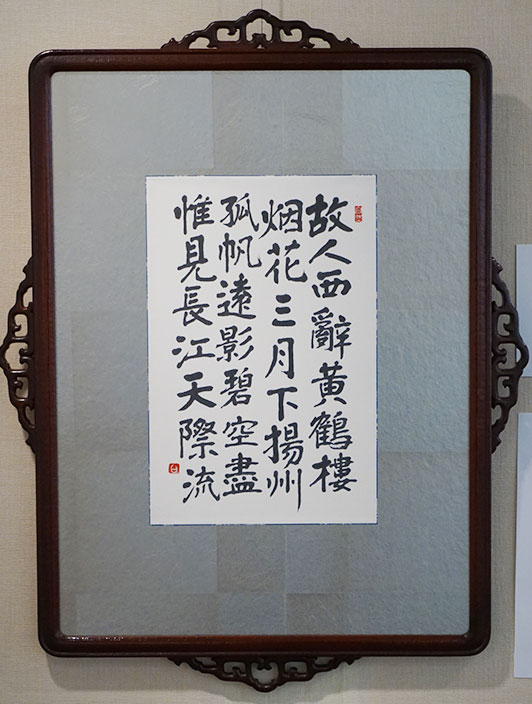 故人西辭黃鶴樓
烟花三月下揚州
孤帆遠影碧空盡
惟見長江天際流